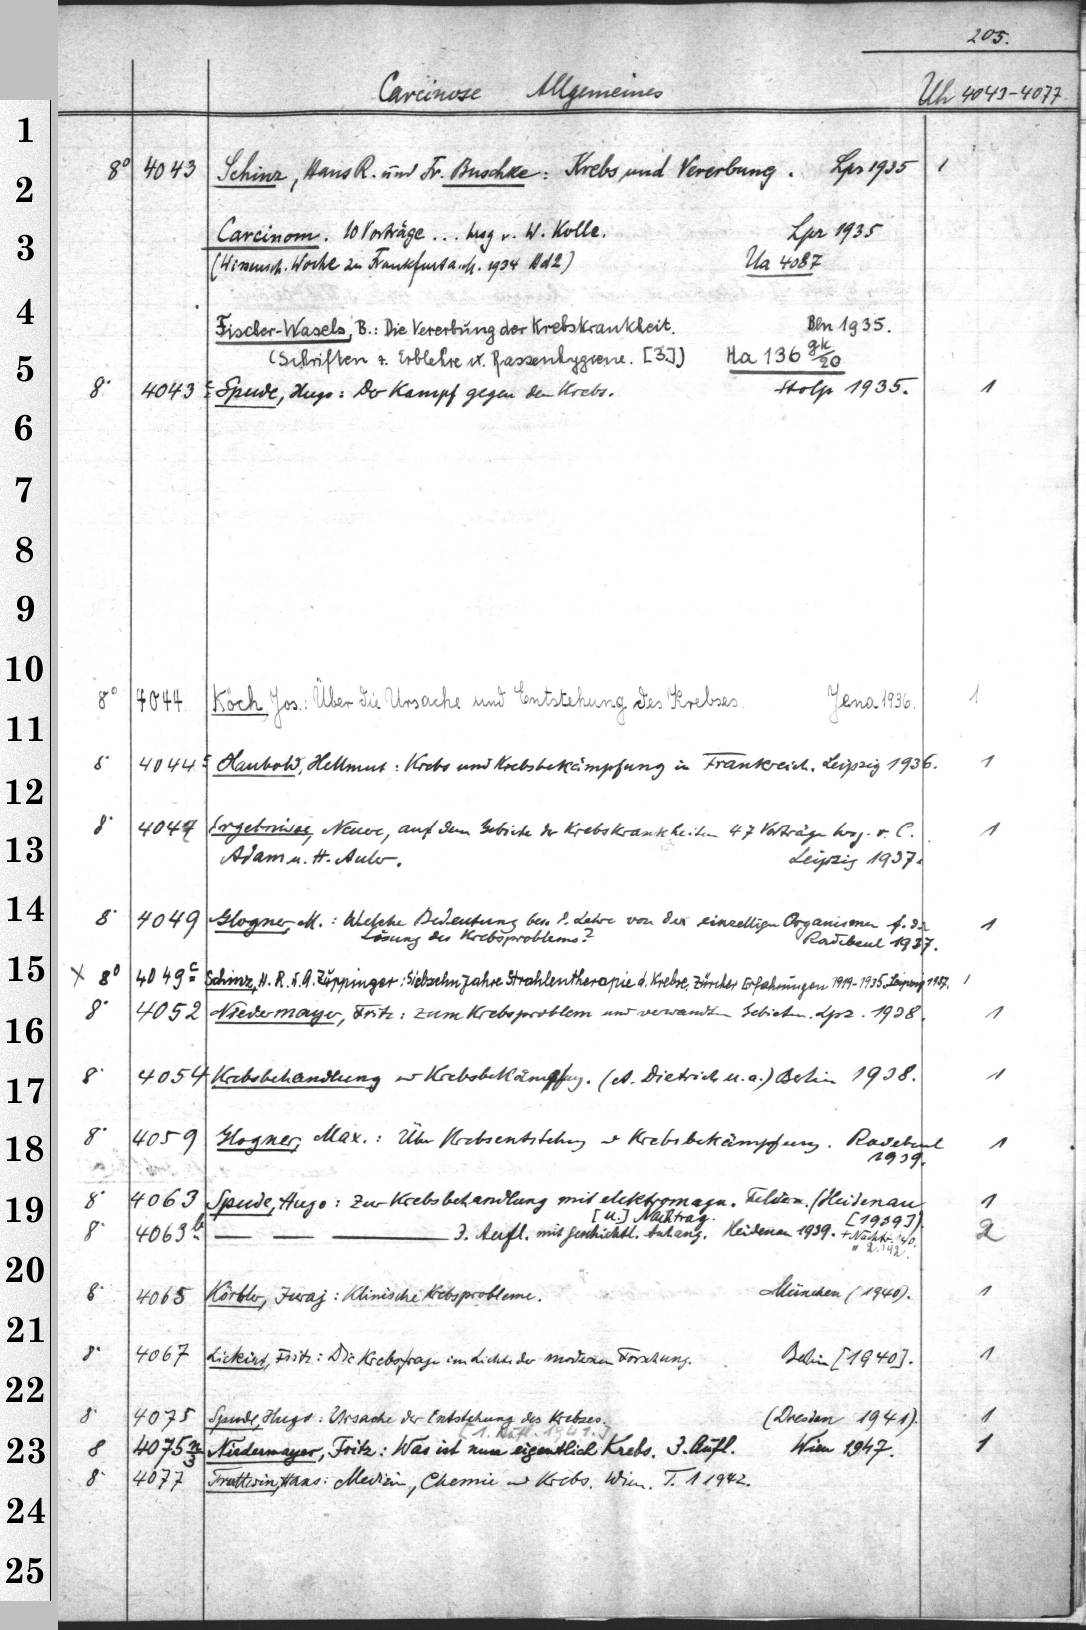 205.
Carcinose Allgemeines Uh 4043-4077
1
8° 4043 Schinz, Hans R. und Fr. Buschke: Krebs und Vererbung. Lpz 1935 1
2
3 Carcinom. 10 Vorträge ... hrsg v. W. Kolle. Lpz 1935
(Wissensch. Woche zu Frankfurt a. M. 1934 Bd 2) Ua 4087
4 Fischer-Wasels, B.: Die Vererbung der Krebskrankheit. Bln 1935.
5 (Schriften z. Erblehre u. Rassenhygiene. [3.]) Ha 136 gk/20
8° 4043 c Spude, Hugo: Der Kampf gegen den Krebs. Stolp 1935. 1
6
7
8
9
10
8° 4044 Koch, Jos.: Über die Ursache und Entstehung des Krebses. Jena 1936. 1
11
8° 4044 c Haubold, Hellmut: Krebs und Krebsbekämpfung in Frankreich. Leipzig 1936. 1
12
8° 4047 Ergebnisse, Neue, auf dem Gebiete der Krebskrankheiten 47 Vorträge hrsg. v. C. 1
13 Adam u. H. Auler. Leipzig 1937.
14 8° 4049 Glogner, M.: Welche Bedeutung bes. d. Lehre von den einzelligen Organismen f. die 1
Lösung des Krebsproblems? Radebeul 1937.
15 X 8° 4049 c Schinz, H. R. u. A. Zuppinger: Siebzehn Jahre Strahlentherapie d. Krebse. Zürcher Erfahrungen 1919-1935. Leipzig 1937. 1
16 8° 4052 Niedermayer, Fritz: Zum Krebsproblem und verwandten Gebieten. Lpz. 1938. 1
17 8° 4054 Krebsbehandlung u Krebsbekämpfung. (A. Dietrich u. a.) Berlin 1938. 1
18 8° 4059 Glogner, Max.: Über Krebsentstehung u Krebsbekämpfung. Radebeul 1
1939.
19 8° 4063 Spude, Hugo: Zur Krebsbehandlung mit elektromagn. Feldern. (Heidenau 1
[u.] Nachtrag. [1939])
8° 4063 b — — — 3. Aufl. mit geschichtl. Anhang. Heidenau 1939. + Nachtr. '40. 2
" 2. '42.
20 8° 4065 Körbler, Juraj: Klinische Krebsprobleme. München (1940). 1
21
8° 4067 Lickint, Fritz: Die Krebsfrage im Lichte der modernen Forschung. Berlin [1940]. 1
22
8° 4075 Spude, Hugo: Ursache der Entstehung des Krebses. (Dresden 1941). 1
[1. Aufl. 1941.]
23 8 4075 n/3 Niedermayer, Fritz: Was ist nun eigentlich Krebs. 3. Aufl. Wien 1947. 1
8° 4077 Truttwin, Hans: Medizin, Chemie u Krebs. Wien. T. 1 1942.
24
25